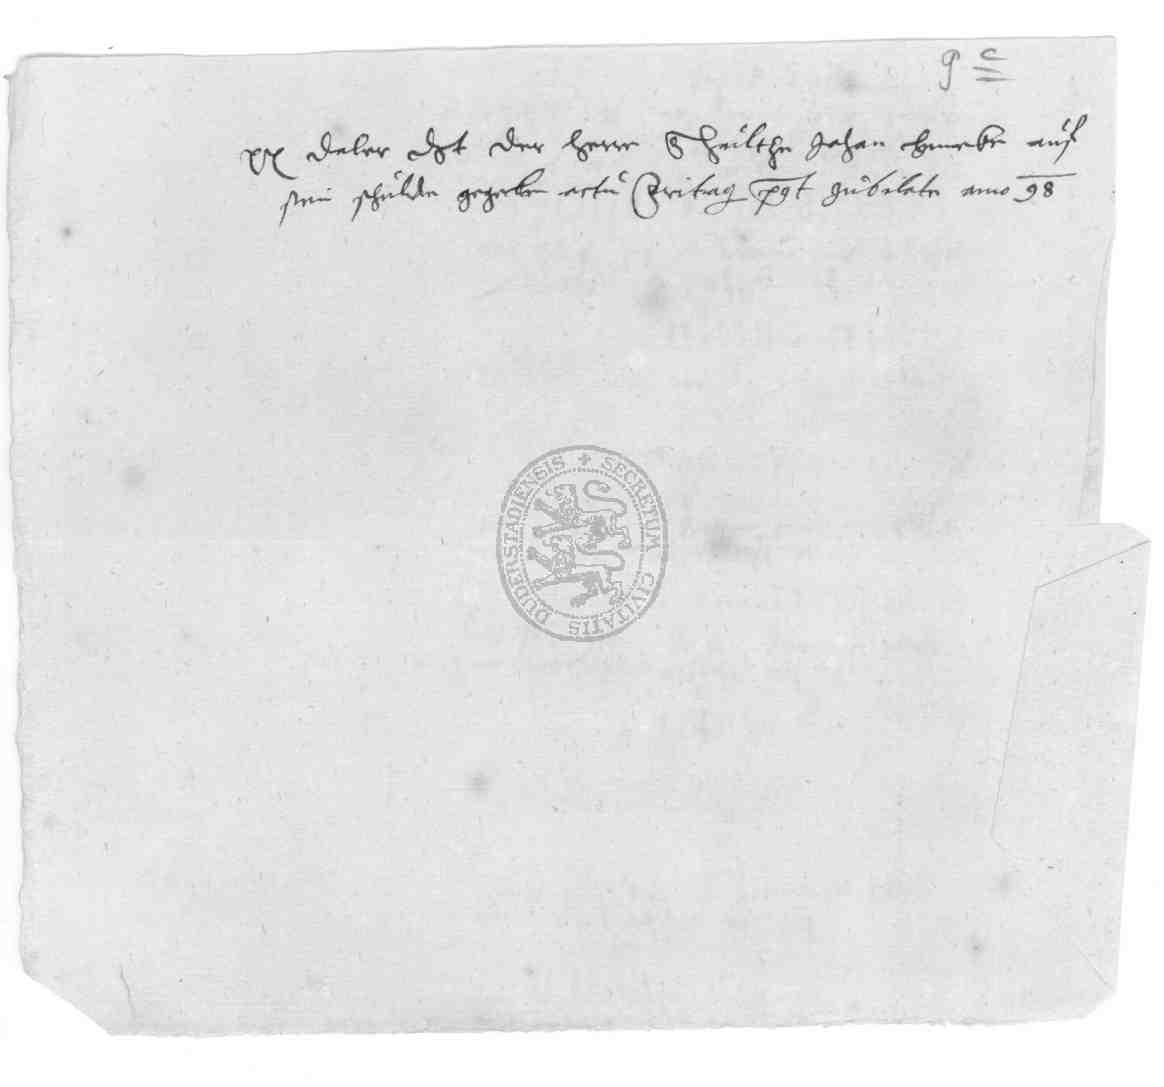 xx daler der herr Schulthe Johan auf
sein schulde gegeben actu Freitag post Jubilate anno 98
SECRETUM CIVITATIS DUDERSTADIENSIS